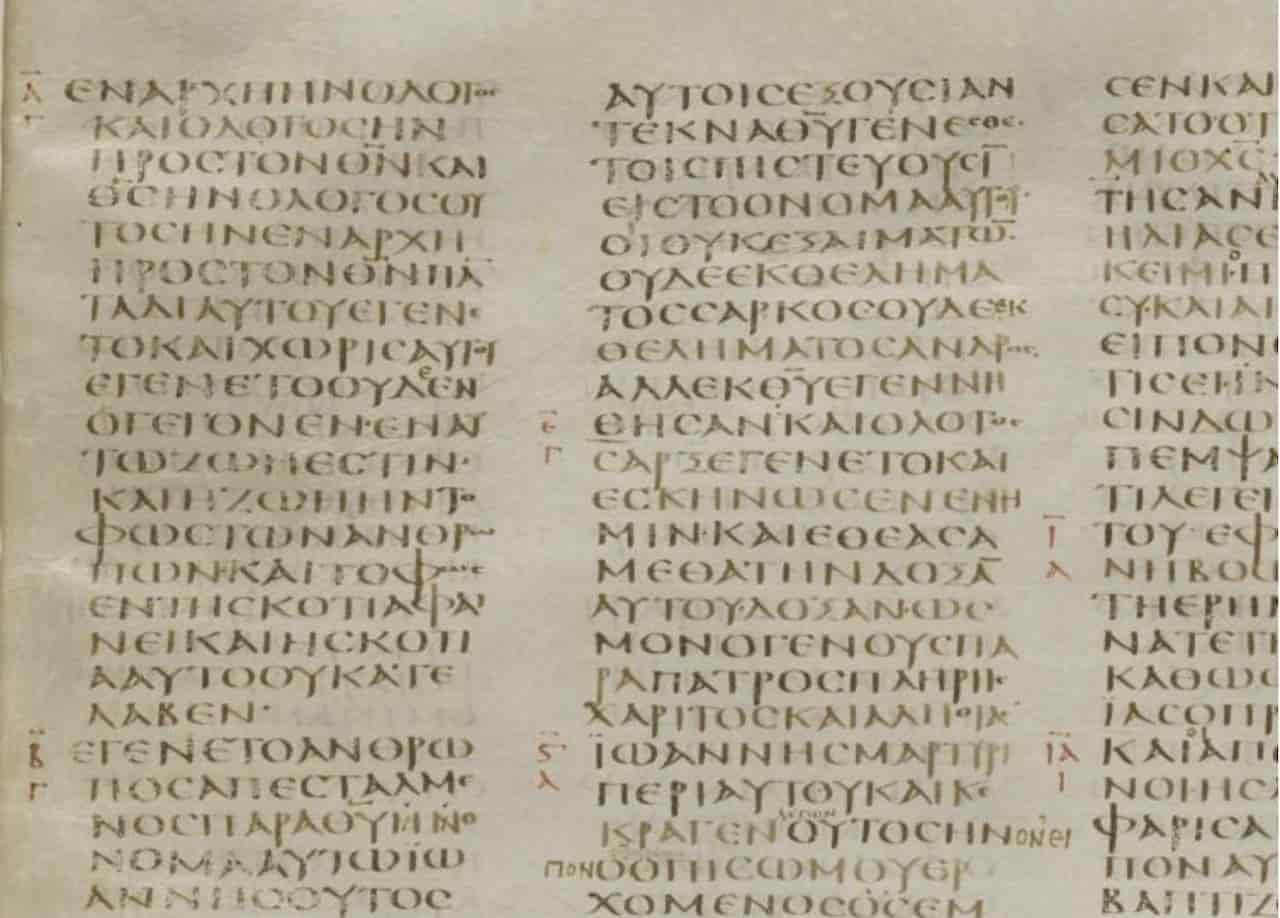 Α̅
Γ
ΕΝΑΡΧΗΗΝΟΛΟΓΟϹ
ΚΑΙΟΛΟΓΟϹΗΝ
ΠΡΟϹΤΟΝΘ̅Ν̅ΚΑΙ
Θ̅Ϲ̅ΗΝΟΛΟΓΟϹΟΥ
ΤΟϹΗΝΕΝΑΡΧΗ
ΠΡΟϹΤΟΝΘ̅Ν̅ΠΑ̅
ΤΑΔΙΑΥΤΟΥΕΓΕΝΕ
ΤΟΚΑΙΧΩΡΙϹΑΥΤΟΥ
ΕΓΕΝΕΤΟΟΥΔεΕΝ
ΟΓΕΓΟΝΕΝ·ΕΝΑΥ
ΤΩΖΩΗΕϹΤΙΝ·
ΚΑΙΗΖΩΗΗΝΤΟ
ΦΩϹΤΩΝΑΝΘΡΩ
ΠΩΝ·ΚΑΙΤΟΦΩϹ
ΕΝΤΗϹΚΟΤΙΑΦΑΙ
ΝΕΙΚΑΙΗϹΚΟΤΙ
ΑΑΥΤΟΟΥΚΑΤΕ
ΛΑΒΕΝ·
Β̅
Γ
ΕΓΕΝΕΤΟΑΝΘΡΩ
ΠΟϹΑΠΕϹΤΑΛΜΕ
ΝΟϹΠΑΡΑΘ̅Υ̅ΗΝΟ
ΝΟΜΑΑΥΤΩΙΩ
ΑΝΝΗϹΟΥΤΟϹ
ΑΥΤΟΙϹΕΞΟΥϹΙΑΝ
ΤΕΚΝΑΘ̅Υ̅ΓΕΝΕϹΘΕ·
ΤΟΙϹΠΙϹΤΕΥΟΥϹΙ̅
ΕΙϹΤΟΟΝΟΜΑΑΥΤΟΥ
ΟΙΟΥΚΕΞΑΙΜΑΤΩ̅·
ΟΥΔΕΕΚΘΕΛΗΜΑ
ΤΟϹϹΑΡΚΟϹΟΥΔΕΕΚ
ΘΕΛΗΜΑΤΟϹΑΝΔΡΟϹ
ΑΛΛΕΚΘ̅Υ̅ΕΓΕΝΝΗ
Ε̅
Γ
ΘΗϹΑΝΚΑΙΟΛΟΓΟϹ
ϹΑΡΞΕΓΕΝΕΤΟΚΑΙ
ΕϹΚΗΝΩϹΕΝΕΝΗ
ΜΙΝ·ΚΑΙΕΘΕΑϹΑ
ΜΕΘΑΤΗΝΔΟΞΑ̅
ΑΥΤΟΥ·ΔΟΞΑΝ·ΩϹ
ΜΟΝΟΓΕΝΟΥϹΠΑ
ΡΑΠΑΤΡΟϹΠΛΗΡΗϹ
ΧΑΡΙΤΟϹΚΑΙΑΛΗΘΙΑϹ
Ϛ̅
Α
ΙΩΑΝΝΗϹΜΑΡΤΥΡΙ
ΠΕΡΙΑΥΤΟΥΚΑΙΚΕ
ΚΡΑΓΕΝλεγωνΟΥΤΟϹΗΝΟΝΕΙ
ΠΟΝΟΟΠΙϹΩΜΟΥΕΡ
ΧΟΜΕΝΟϹΟϹΕΜ
ϹΕΝΚΑΙ
ϹΑΤΟΟΤ
ΜΙΟΧ̅Ϲ̅
ΤΗϹΑΝ
ΗΛΙΑϹΕ
ΚΕΙΜΙ·
ϹΥ·ΚΑΙΑ
ΕΙΠΟΝ
ΤΙϹΕΙ
ϹΙΝΔΩ
ΠΕΜΨΑ
ΤΙΛΕΓΕΙ
Ι̅
Α
ΤΟΥ·ΕΦ
ΝΗΒΟ
ΤΗΕΡΗ
ΝΑΤΕΤΗ
ΚΑΘΩϹ
ΙΑϹΟΠΡ
Ι̅Α̅
Ι
ΚΑΙΑΠ
ΝΟΗϹ
ΦΑΡΙϹΑ
ΠΟΝΑΥ
ΒΑΠΤΙΖ